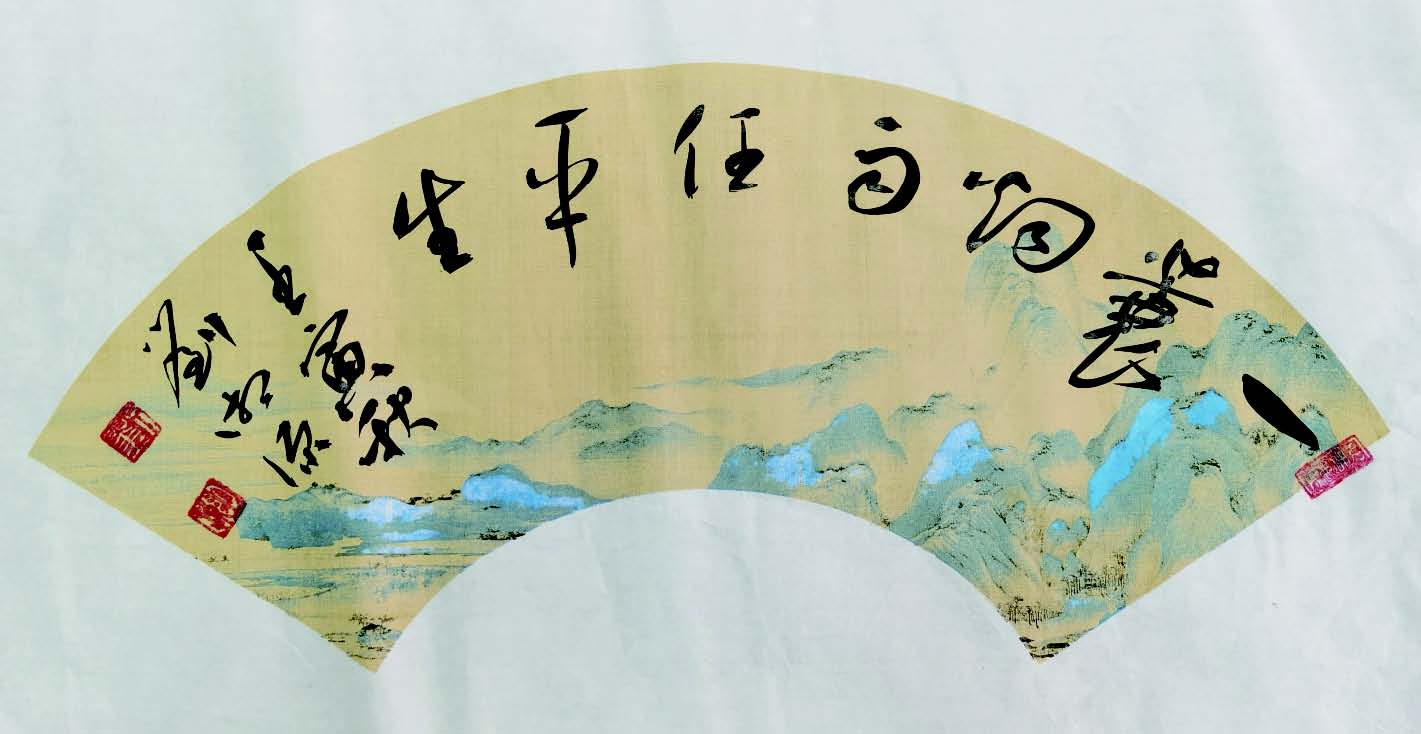 一蓑烟雨任平生
壬寅秋
刘